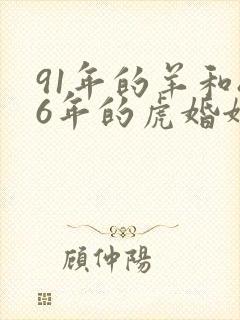 91年的羊和
6年的虎婚
顾仲陽